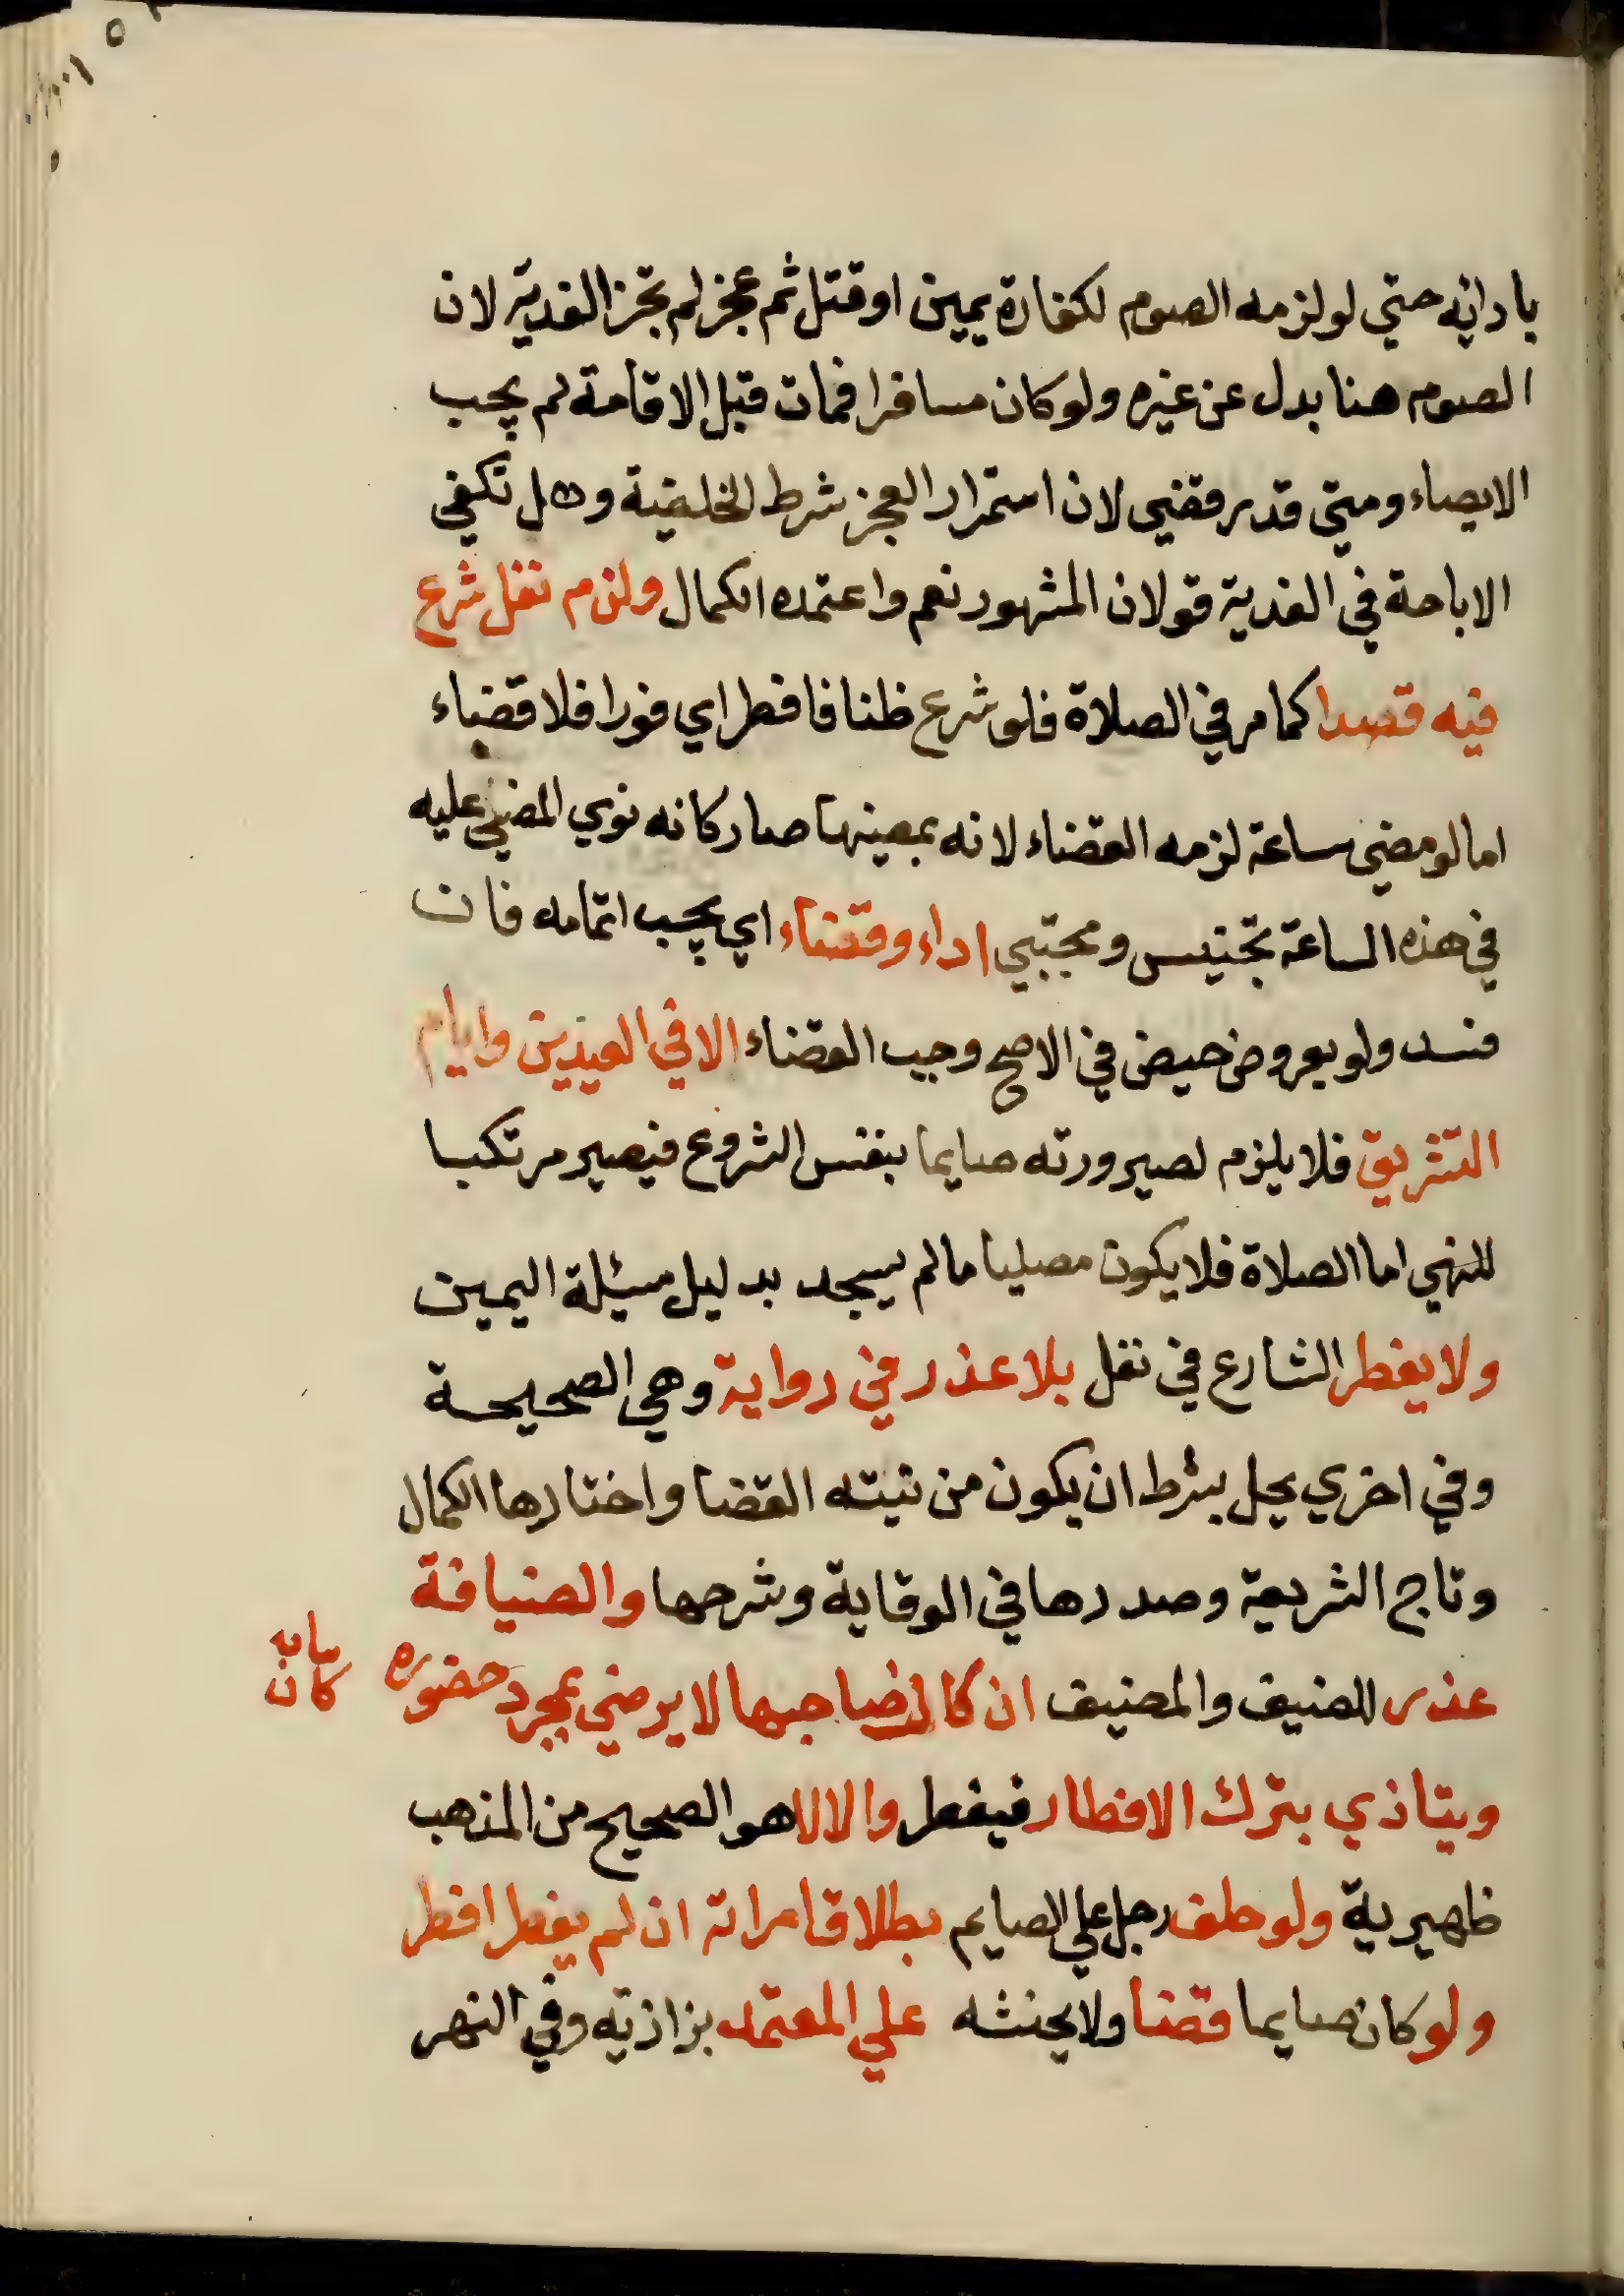 بادائه حتي لو لزمه الصوم لكفارة يمين او قتل ثم عجز لم تجز الفدية لان
الصوم هنا بدل عن غيره ولو كان مسافرا فمات قبل الاقامة لم يجب
الايصاء ومتي قدر قضي لان استمرار العجز شرط الخلفية وهل تكفي
الاباحة في الفدية قولان المشهور نعم واعتمده الكمال ولزم نفل شرع
فيه قصدا كما مر في الصلاة فلو شرع ظنا فافطر اي فورا فلا قضاء
اما لو مضي ساعة لزمه القضاء لانه بمضيها صار كانه نوي المضي عليه
في هذه الساعة تجنيس ومجتبي اداء وقضاء اي يجب اتمامه فان
فسد ولو بعروض حيض في الاصح وجب القضاء الا في العيدين وايام
التشريق فلا يلزم لصيرورته صايما بنفس الشروع فيصير مرتكبا
للنهي اما الصلاة فلا يكون مصليا مالم يسجد بدليل مسئلة اليمين
ولا يفطر الشارع في نفل بلا عذر في رواية وهي الصحيحة
وفي اخري يحل بشرط ان يكون من نيته القضا واختارها الكمال
وتاج الشريعة وصدرها في الوقاية وشرحها والضيافة
عذر للضيف والمضيف ان كان صاحبها لا يرضي بمجرد حضوره
كان
ويتاذي بترك الافطار فيفطر والا لا هو الصحيح من المذهب
ظهيرية ولو حلف رجل علي الصايم بطلاق امراته ان لم يفطر افطر
ولو كان صايما قضا ولا يحنثه علي المعتمد بزازية وفي النهر